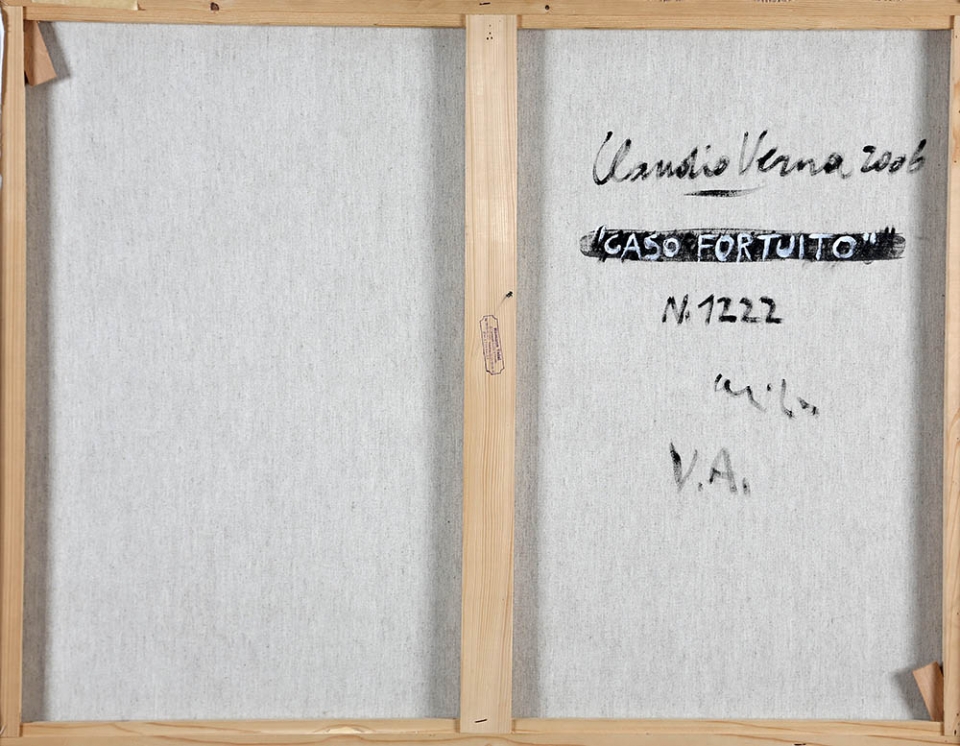 Claudio Verna 2006
"CASO FORTUITO"
N. 1222
V.A.